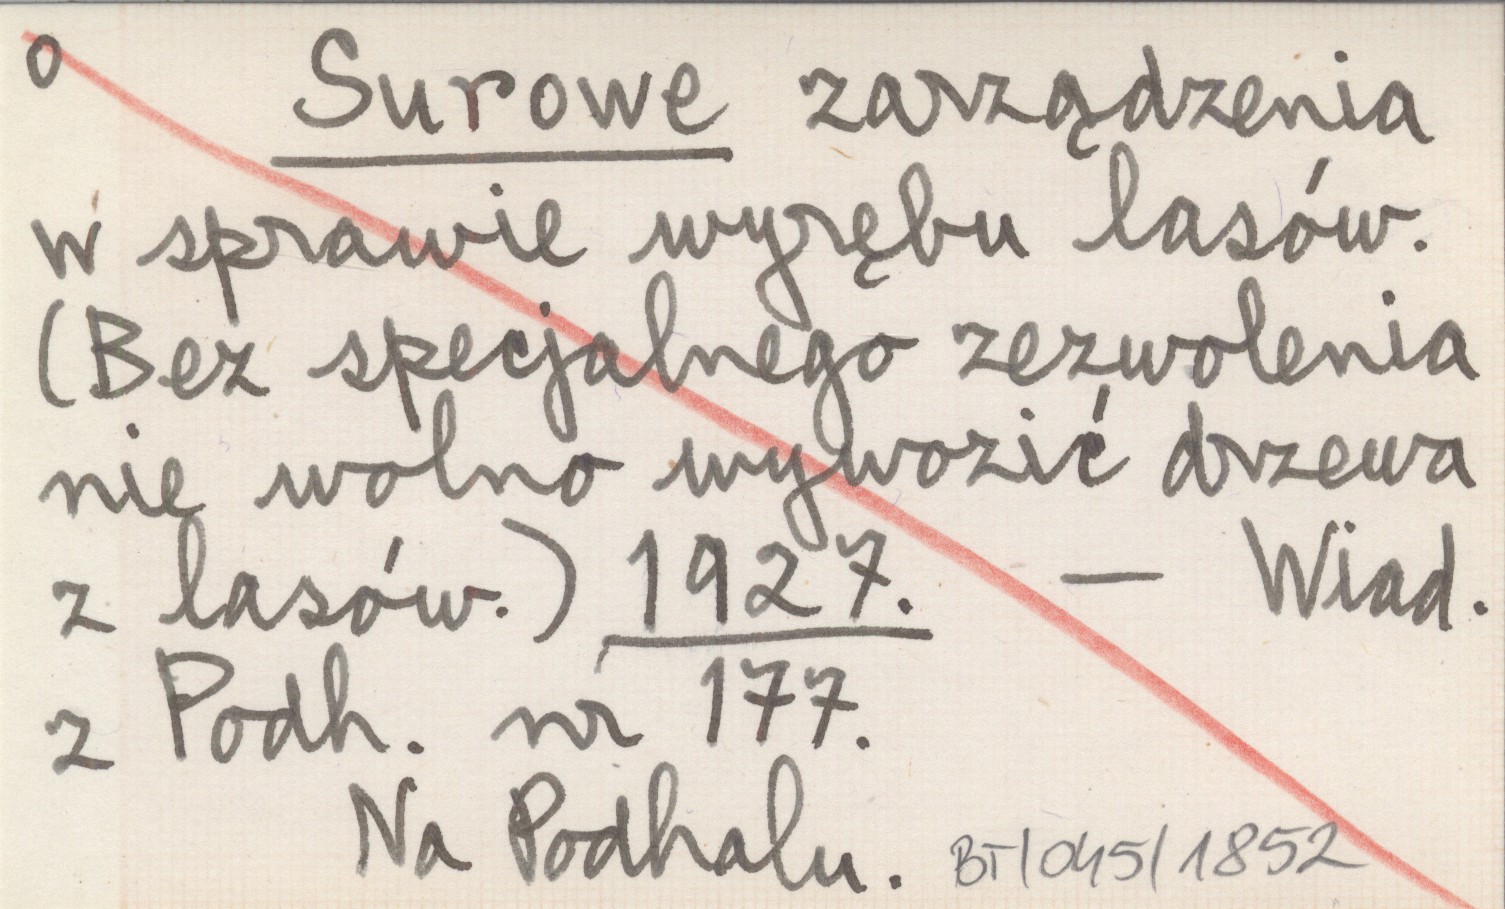 o Surowe zarządzenia
w sprawie wyrębu lasów.
(Bez specjalnego zezwolenia
nie wolno wywozić drzewa
z lasów.) 1927. — Wiad.
z Podh. nr 177.
Na Podhalu. BT/045/1852